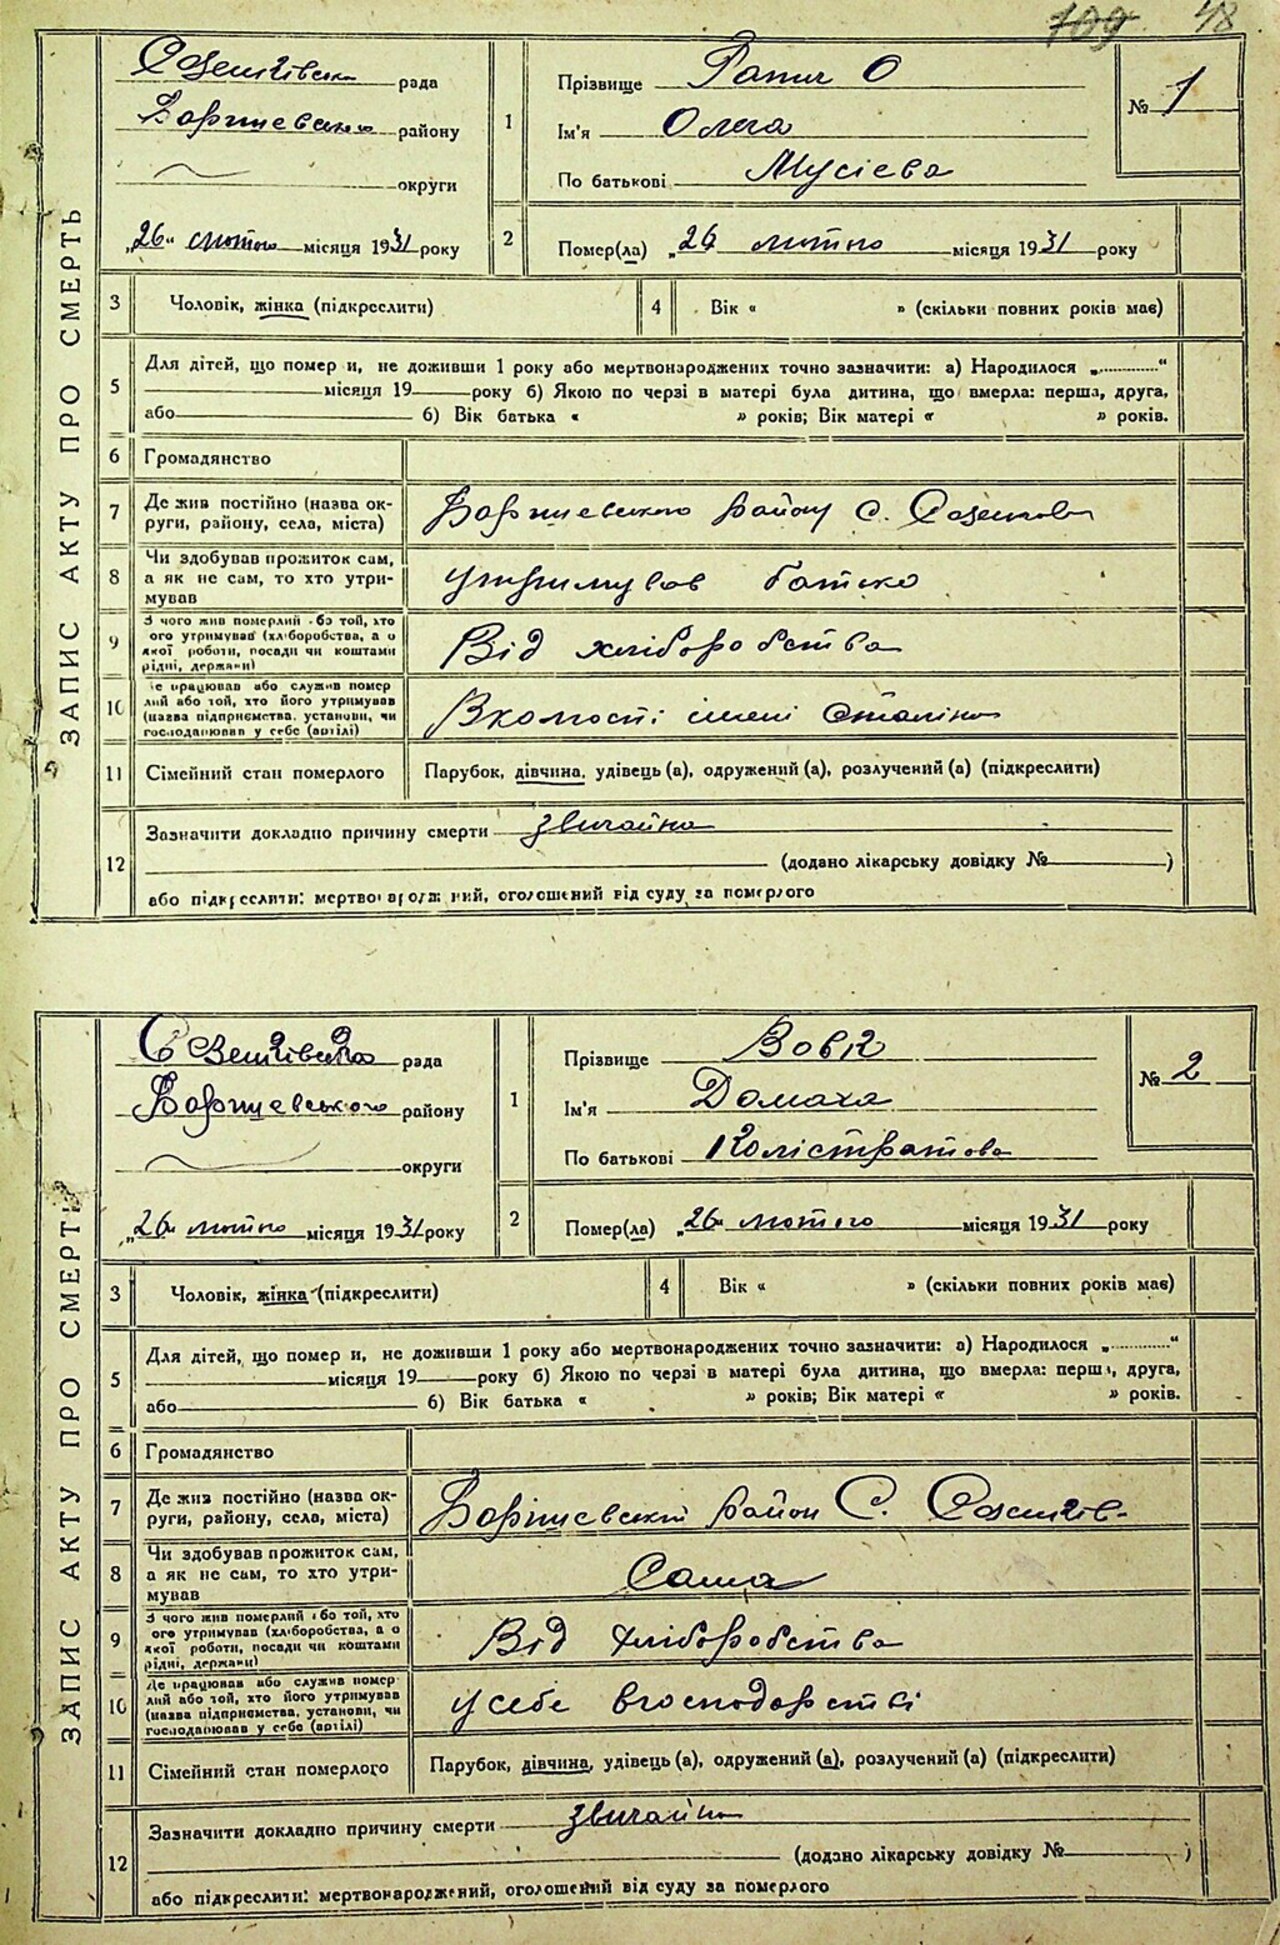 109 48
ЗАПИС АКТУ ПРО СМЕРТЬ
рада
Баришевського району
округи
„26" лютого місяця 1931 року
1
Прізвище
Ім'я Олега
По батькові Мусієва
№ 1
2
Помер(ла) „26 лютого місяця 1931 року
3 Чоловік, жінка (підкреслити)
4 Вік « » (скільки повних років має)
5
Для дітей, що помер и, не доживши 1 року або мертвонароджених точно зазначити: а) Народилося „ “
місяця 19 року б) Якою по черзі в матері була дитина, що вмерла: перша, друга,
або б) Вік батька « » років; Вік матері « » років.
6 Громадянство
7
Де жив постійно (назва ок-
руги, району, села, міста)
Баришевського району с.
8
Чи здобував прожиток сам,
а як не сам, то хто утри-
мував
утримував батько
9
З чого жив померлий або той, хто
ого утримував (хліборобства, а о
якої роботи, посади чи коштами
рідні, держави)
Від хліборобства
10
е працював або служив помер
лий або той, хто його утримував
(назва підприємства, установи, чи
господарював у себе (артілі)
імені Сталіна
11 Сімейний стан померлого
Парубок, дівчина, удівець (а), одружений (а), розлучений (а) (підкреслити)
12
Зазначити докладно причину смерти звичайна
(додано лікарську довідку № )
або підкреслити: мертвонароджений, оголошений від суду за померлого
ЗАПИС АКТУ ПРО СМЕРТЬ
рада
Баришевського району
округи
„26" лютого місяця 1931 року
1
Прізвище Вовк
Ім'я Домаха
По батькові Калістратова
№ 2
2
Помер(ла) „26" лютого місяця 1931 року
3 Чоловік, жінка (підкреслити)
4 Вік « » (скільки повних років має)
5
Для дітей, що помер и, не доживши 1 року або мертвонароджених точно зазначити: а) Народилося „ “
місяця 19 року б) Якою по черзі в матері була дитина, що вмерла: перша, друга,
або б) Вік батька « » років; Вік матері « » років.
6 Громадянство
7
Де жив постійно (назва ок-
руги, району, села, міста)
Баришевський район С.
8
Чи здобував прожиток сам,
а як не сам, то хто утри-
мував
Сама
9
З чого жив померлий або той, хто
ого утримував (хліборобства, а о
якої роботи, посади чи коштами
рідні, держави)
Від хліборобства
10
Де працював або служив помер
лий або той, хто його утримував
(назва підприємства, установи, чи
господарював у себе (артілі)
у себе в господарстві
11 Сімейний стан померлого
Парубок, дівчина, удівець (а), одружений (а), розлучений (а) (підкреслити)
12
Зазначити докладно причину смерти звичайна
(додано лікарську довідку № )
або підкреслити: мертвонароджений, оголошений від суду за померлого